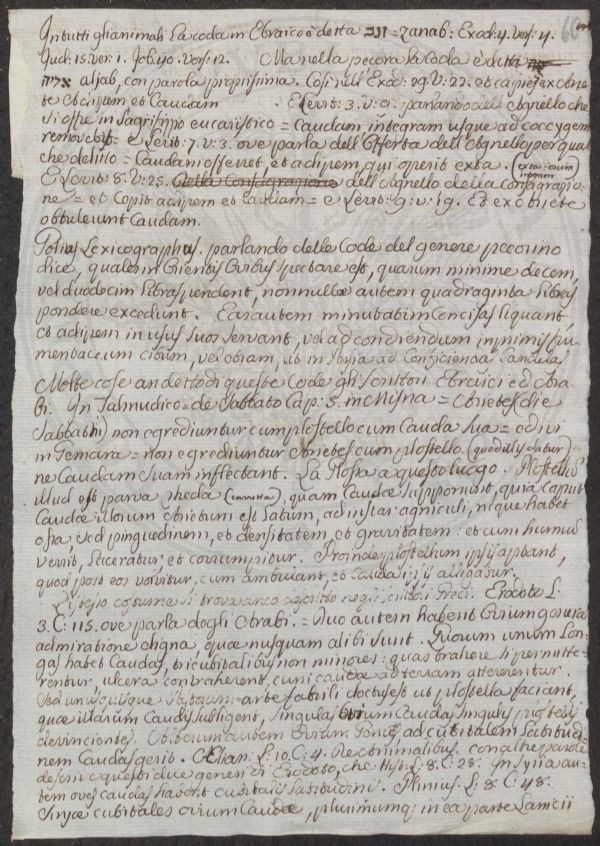 In tutti gli animali La coda in Ebraico è detta זנב = zanab: Exod: 4. vers: 4.
Jud: 15. ver: 1. Job. 40. vers: 12. Ma nella pecora la Coda è detta
אליה aljah, con parola propissima. Così nell' Exod: 29. V: 22. et capies ex Ariete
te et adipem et Caudam. E Levit: 3. V: 9. parlando dell' Agnello che
si offre in sagrifizio eucaristico = Caudam integram usque ad coccygem
removebit = e Levit: 7. V: 3. ove parla dell' Offerta dell' Agnello per qual
che delitto = Caudam offeret, et adipem, qui operit exta. (exta
E Levit: 8. V: 25. Nella Consagrazione dell' Agnello della Consagrazio
ne = et Cepit adipem et Caudam = e Levit: 9: v: 19. Et ex Ariete
obtulerunt Caudam.
Lexicographus. parlando delle Code del genere pecorino
dice, quales in Orientis Ovibus spectare est, quarum minime decem,
vel duodecim libras pendent, nonnullæ autem quadraginta libras
pondere excedunt. Eas autem minutatim Concisas liquant
et adipem in usus suos servant, vel ad condiendum inprimis fru
mentaceum cibum, vel etiam, ut in Syria ad Conficiendas Candelas
Molte cose an detto di queste Code gli scrittori Ebraici ed Ara
bi. In Talmudico = de Sabbato Cap: 5. in Misna = Arietes (die
Sabbathi) non egrediuntur cum plostello cum Cauda sua = ed ivi
in Gemara = non egrediuntur Arietes cum plostello. (quod illis datur
ne Caudam suam inflectant. La Glosa a questo luogo. Plostellum
illud est parva rheda (carretta), quam Caudæ supponunt, quia Caput
Caudæ illorum Arietum est Latum, ad instar agniculi, neque habet
ossa, sed pinguedinem, et densitatem, et gravitatem: et cum humum
verrit, Laceratur et corrumpitur. Proinde plostellum ipsi aptant,
quod post eos volvitur, cum ambulant, et Cauda ipsi alligatur.
costume si trova anco descritto negli scrittori Greci. Erodoto L:
3. C: 115. ove parla degli Arabi. = Duo autem habent Ovium genera
admiratione digna, quæ nusquam alibi sunt. Quorum unum Lon-
gas habet Caudas, tricubitalibus non minores: quas trahere si permitte-
rentur, ulcera contraherent, cum cauda ad terram attererentur.
Sed unusquisque Pastorum arte fabrili doctus est ut plostella faciant,
quæ illarum Caudis subligent, singulas Ovium Caudas singulis plostellis
devincientes. Alterum autem Ovium Genus ad cubitalem Latitudi
nem Caudas gerit. Ælian. L: 10. C: 4. con altre parole
descrive questi due generi di Erodoto, che Hist: L: 8. C: 28. In Syria au-
tem oves caudas habent cubitali Latitudini. Plinius. L: 8. C: 48.
Syriæ cubitales ovium Caudæ, plurimumq: in ea parte Lanicii